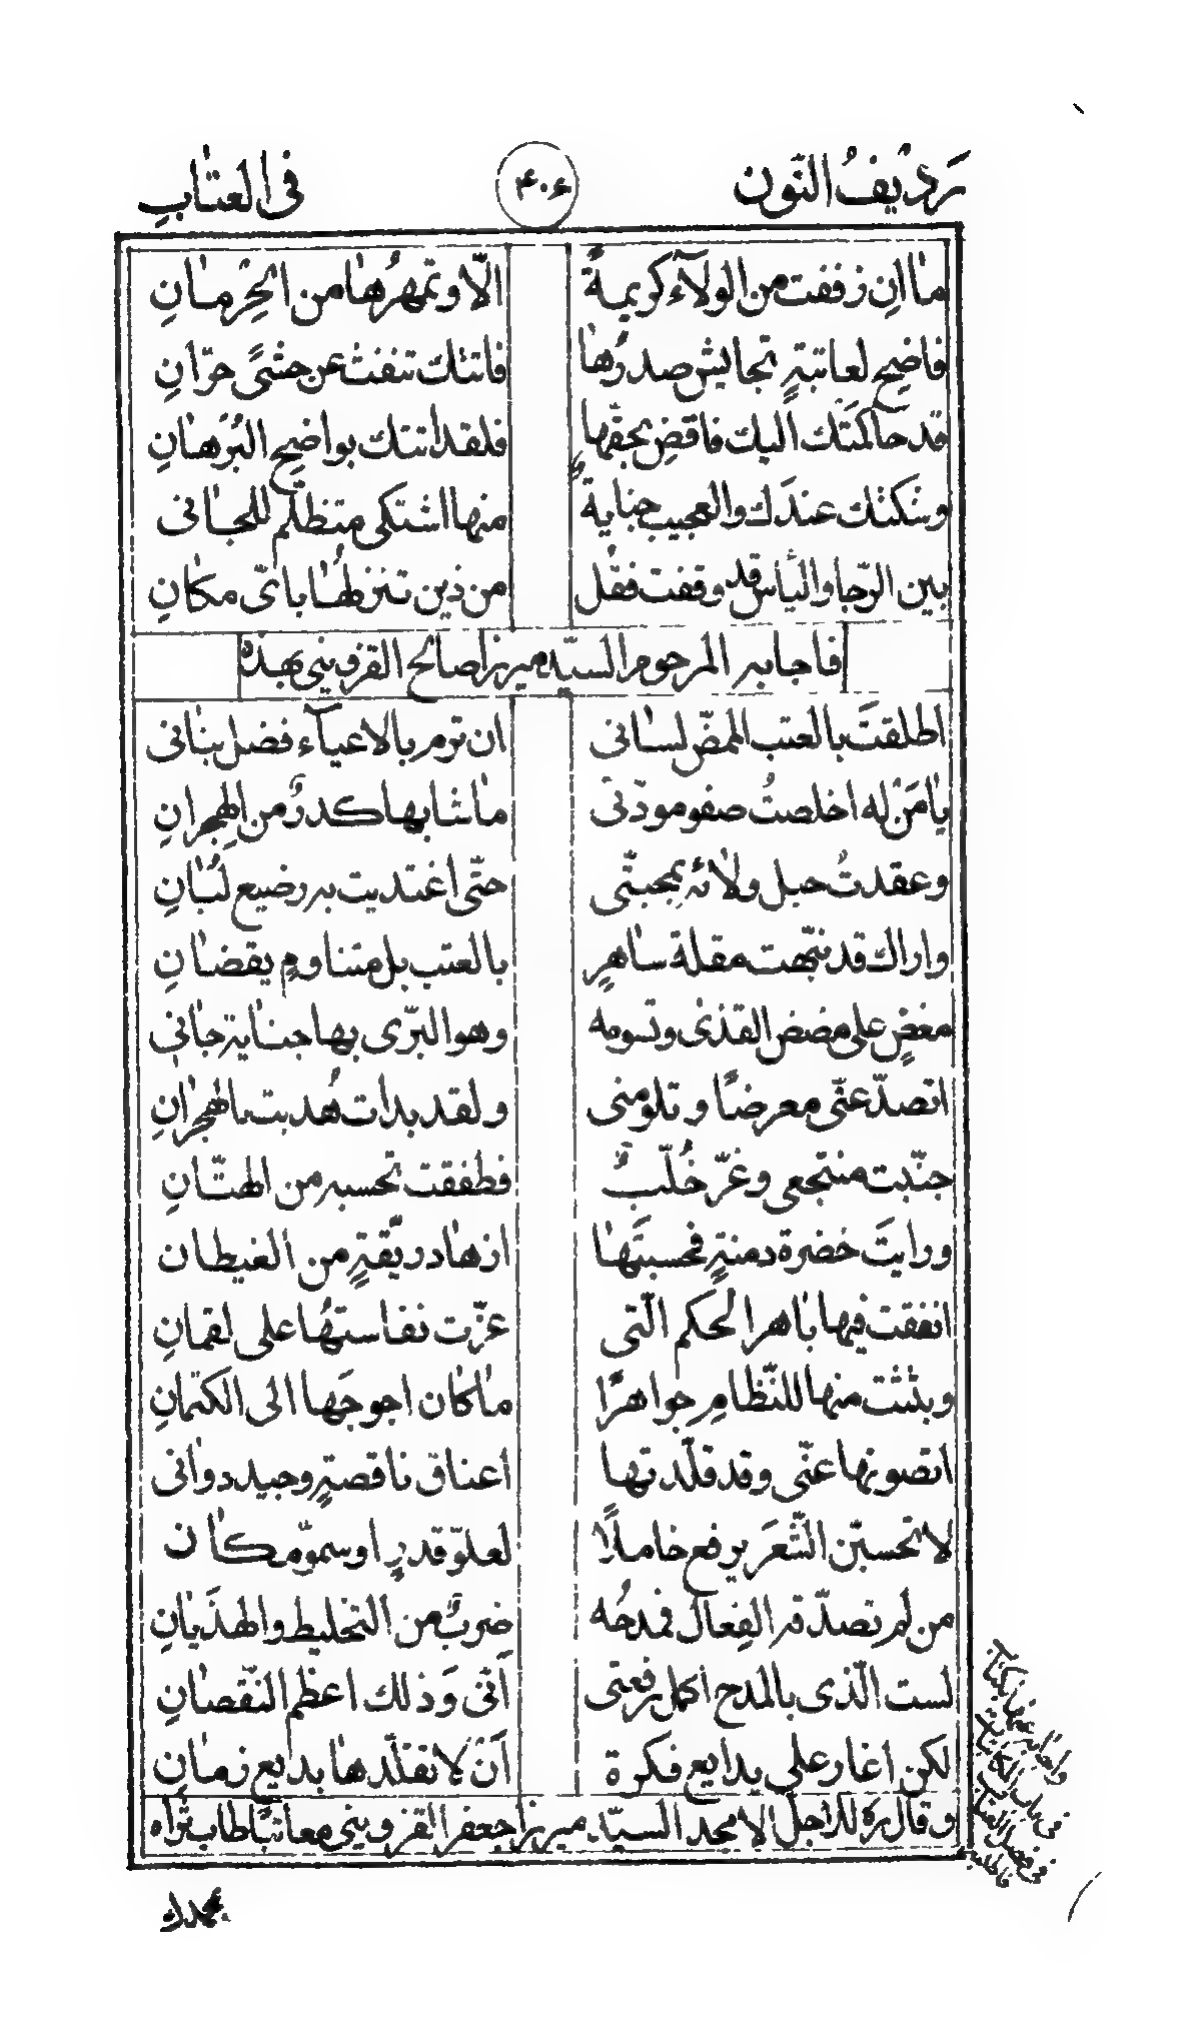 رَديْفُ النّون ۴۰۶ فى العتٰابِ
مٰا ان زففت من الولآء كريمةً الّا وتمهرُهٰا من الحِرمٰانِ
فاضِح لعاتبةٍ تجايش صدرُهٰا فاتتك تنفث عن حشىً حرّانِ
قد حاكمَتك اليك فاقضِ بحقّها فلقد اتتك بواضِح البُرهٰانِ
وشكتك عندَك والعجيب جنايةً منها اشتكى متظلّم للجٰانى
بين الرّجا والياس قد وقفت فقل من ذين تنزلهُٰا باىّ مكانِ
فاجابه المرحوم السيّد ميرزا صالح القزوينى بهذه
اطلقتَ بالعتب الممضّ لسٰانى ان ترم بالاعيآء فضل بنٰانى
يٰا مَن له اخلصتُ صفو مودّتى مٰا شابها كدرٌ من الهجرانِ
وعقدتُ حبل ولٰائه بمحبتّى حتّى اغتديت به رضيع لبٰانِ
واراك قد نبّهت مقلة سٰاهرٍ بالعتب بل متناومٍ يقضٰانِ
مغضٍ على مضض القذى وتسومه وهو البرّى بها جنٰاية جانى
اتصدّ عنّى معرضًا وتلومنى ولقد بدات هُديت بالهجرٰانِ
جنّبت منتجعى وغرّ خُلّبٌ فطفقت تحسبه من الهتّانِ
ورايتَ خضرة دمنةٍ فحسبتَهٰا ازهٰار ريّقةٍ من الغيطان
انفقت فيها بٰاهر الحكم الّتى عزّت نفاستهُا على لقمانِ
وبثثت منها للنّظامِ جواهرًا مٰا كان احوجَها الى الكتمانِ
اتصونها عنّى وقد قلّدتها اعناق ناقصةٍ وجيد دوٰانى
لا تحسبّن الشّعرَ يرفع خاملًا لعلوّ قدرٍ او سموّ مكان
من لم تصدّقه الفِعال فمدحُه ضربٌ من التخليط والهذَيٰانِ
لست الّذى بالمدح اكمل رفعتى انّى وَذلك اعظم النّقصٰانِ
لكن اغار على بدايع فكرة اَن لا تقلّدهٰا بديع زمٰانِ
وقال ره للاجلّ الامجد السيّد ميرزا جعفر القزوينى معاتبًا طاب ثراه